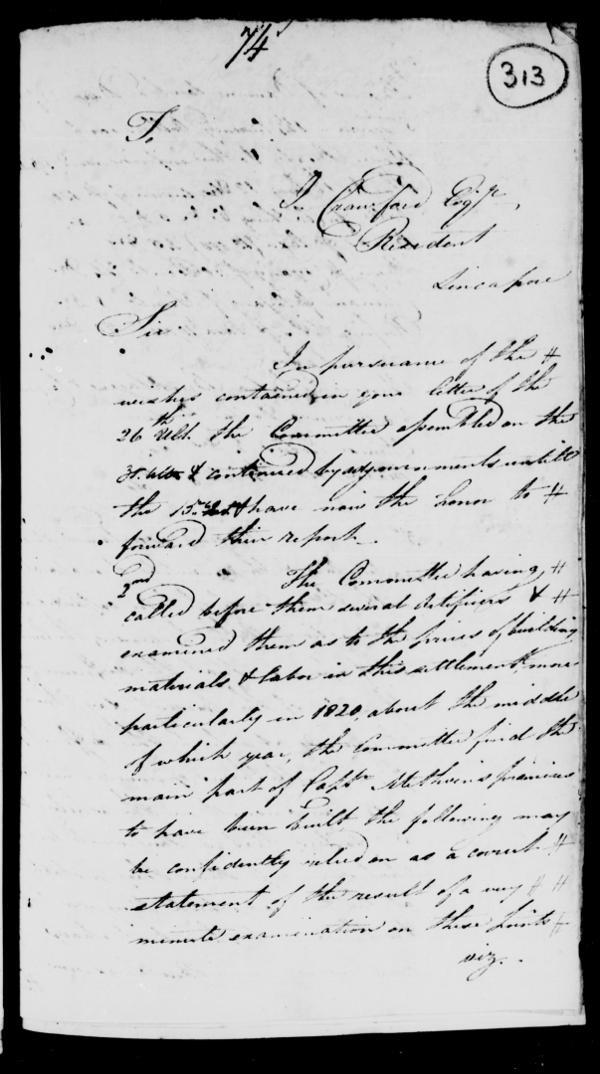 74
313
To
J. Crawfurd Esqr.
Resident
Sincapore
Sir
In pursuance of the #
wishes contained in your letter of the
26th Ulto. the Committee assembled on the
31. Ulto. & continued by adjournments untill
the 15th & have now the honor to #
forward their report.
2nd The Committee having #
called before them several Artificers & #
examined them as to the prices of building
materials & labor in this settlement more
particularly in 1820, about the middle
of which year, the Committee find the
main part of Captn. Methvens premises
to have been built the following may
be confidently relied on as a correct #
statement of the result of a very # #
minute examination on these points #
viz.